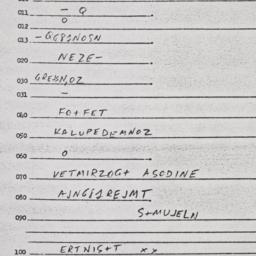 011 – Q
012 O
013 -GC8INOSN
020 NEZE-
030 GREBN,OZ
031 –
040 FO+FET
050 KALUPEDEMNOZ
060 O
070 VETMIRZOG+ ASODINE
080 AJNGI1REJMT
090 S+MUJELN
100 ERTNIS+T xx